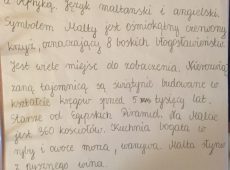 a Afryką. Język maltański i angielski.
Symbolem Malty jest ośmiokątny czerwony
krzyż, oznaczający 8 boskich błogosławieństw
Jest wiele miejsc do zobaczenia. Nierozwią
zaną tajemnicą są świątynie budowane w
kształcie kręgów ponad 5 tysięcy lat.
Starsze od Egipskich Piramid. Na Malcie
jest 360 kościołów. Kuchnia bogata w
ryby i owoce morza, warzywa. Malta słynie
z pysznego wina.